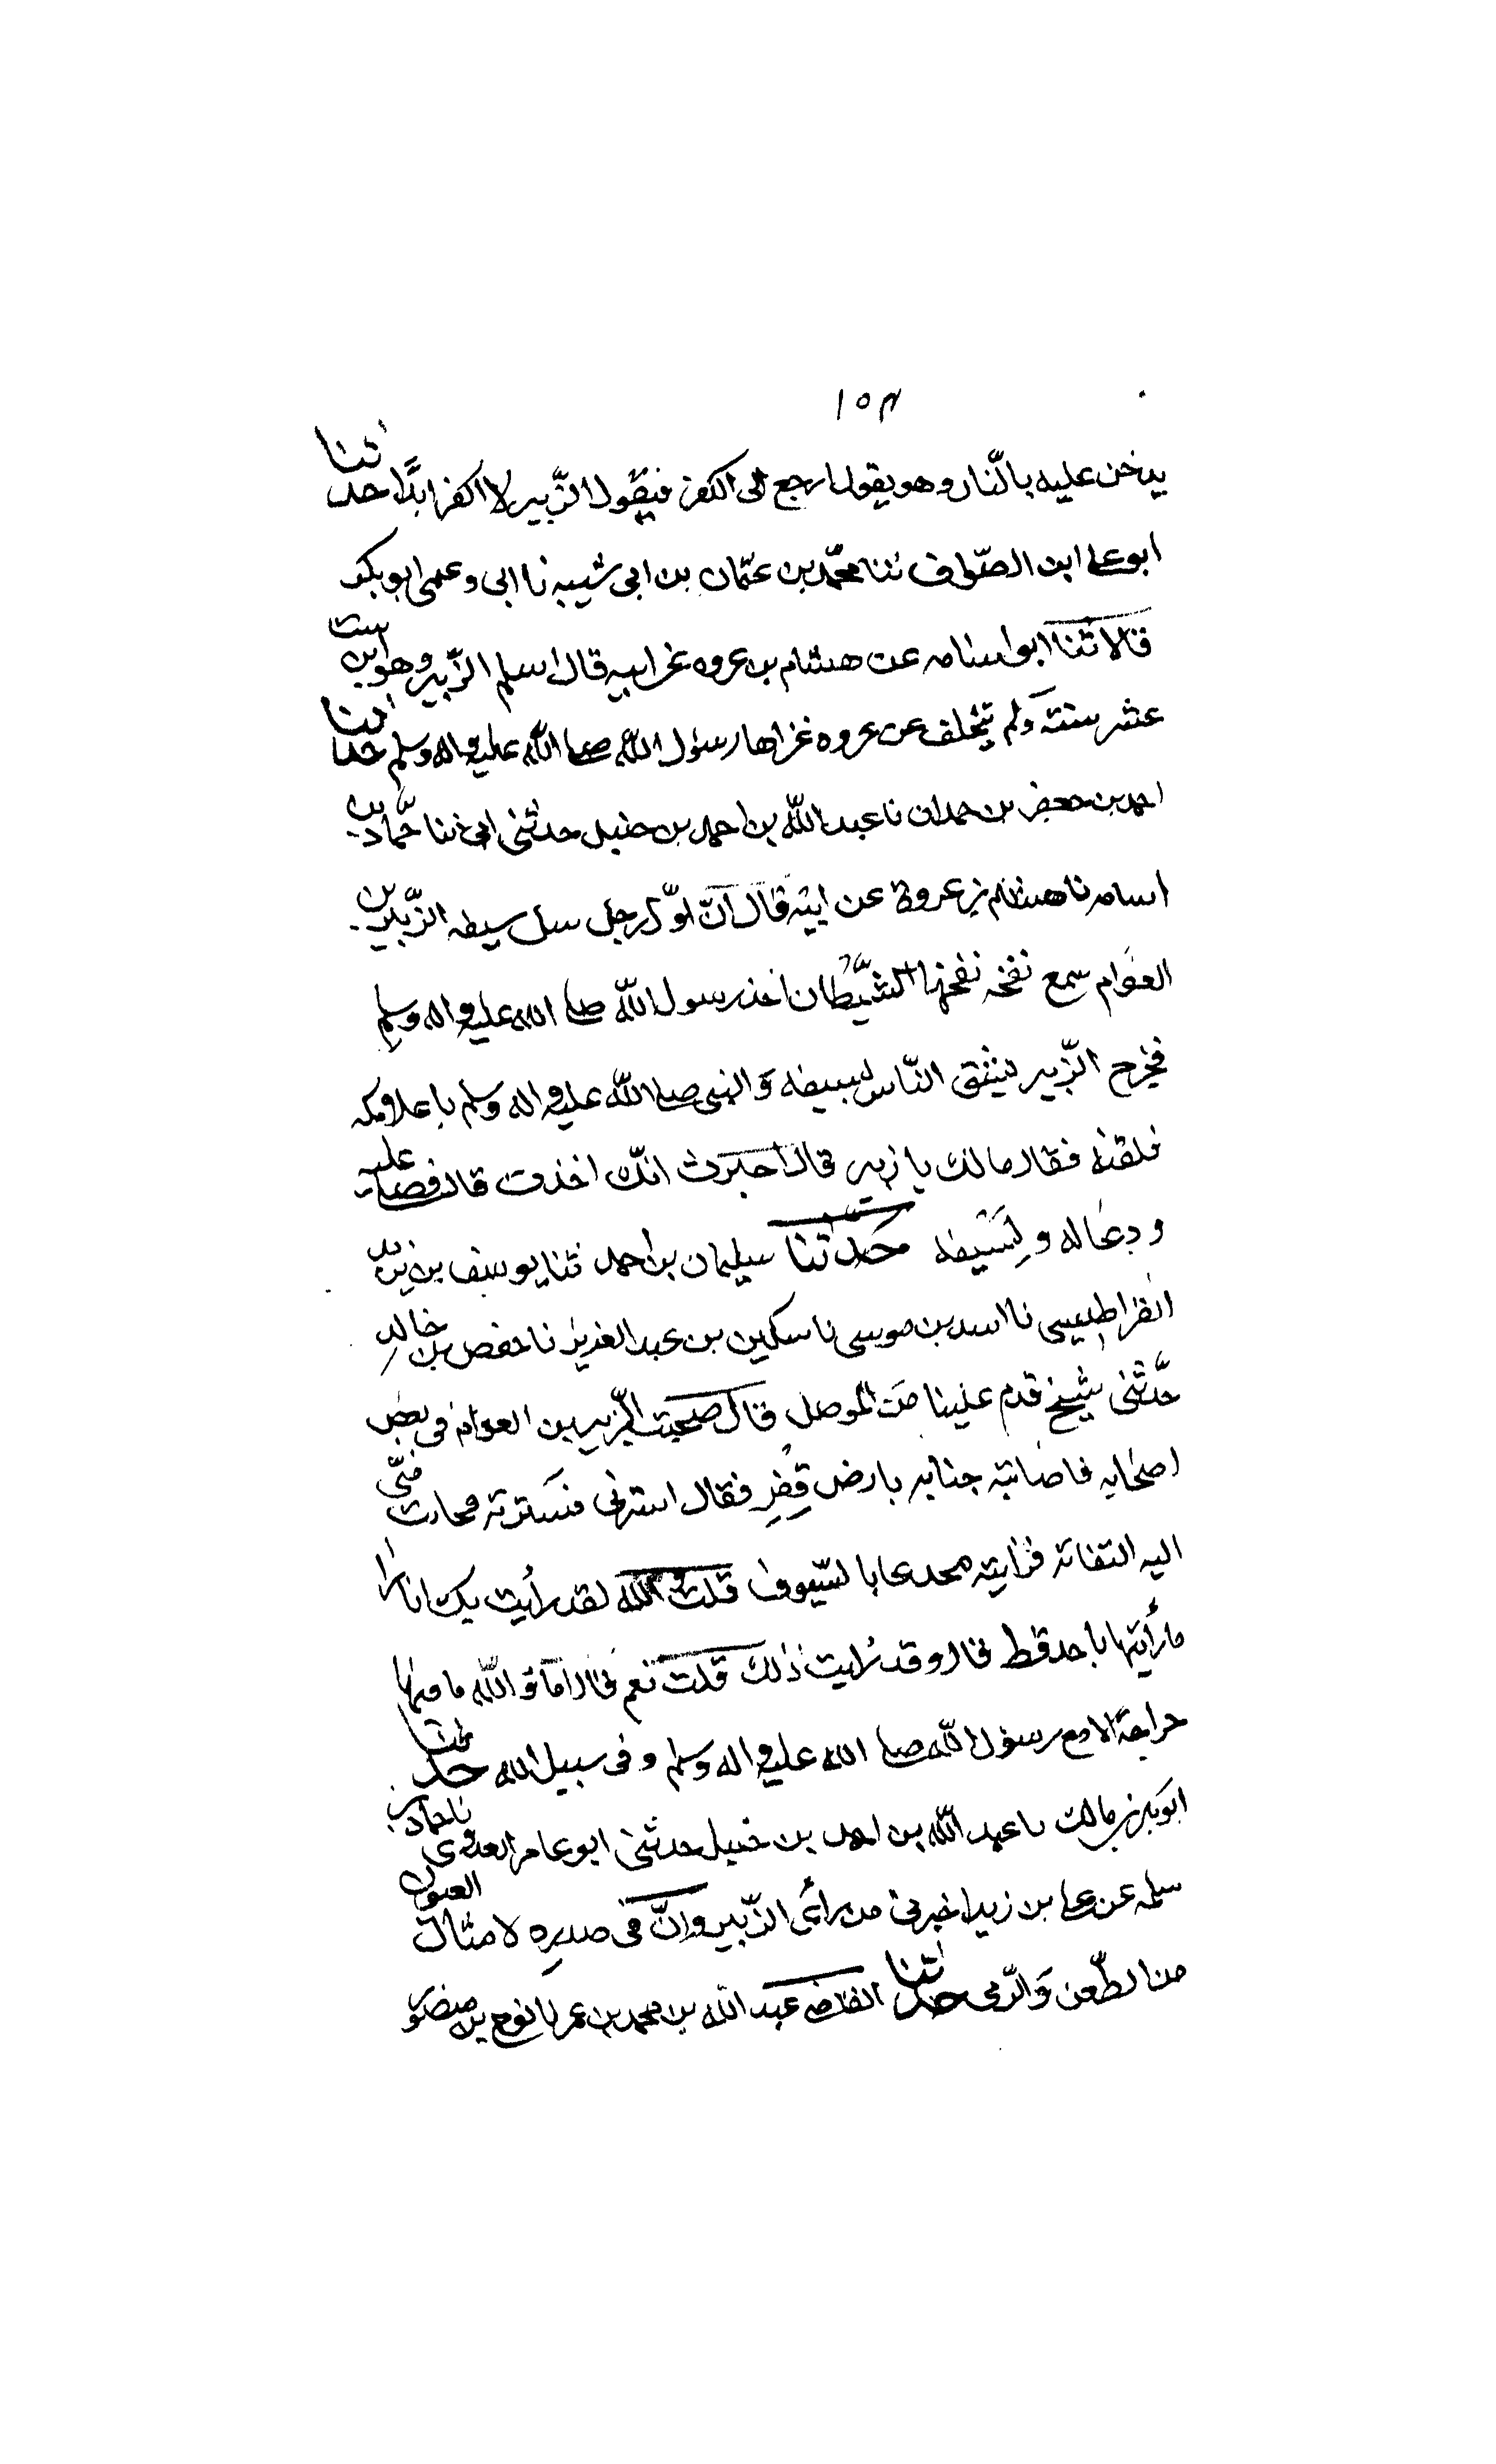 ١٥٣
يدخن عليه بالنّار وهو يقول ارجع الى الكفر فيقول الزّبير لا اكفر ابدًا حدثنا
ابو على ابن الصّواف ثنا محمّد بن عثمان بن ابى شيبه نا ابى وعمى ابو بكر
قالا ثنا ابو اسامه عن هشام بن عروه عن ابيه قال اسلم الزّبير وهو ابن ست
عشر سنة ولم يتخلف عن غزوه غزاها رسول الله صلى الله عليه واله وسلم حدثنا
احمد بن جعفر بن حمدان نا عبد الله بن احمد بن حنبل حدثنى ابى ثنا حمّاد بن
اسامه نا هشام بن عروة عن ابيه قال انّ اوّل رجل سل سيفه الزّبير بن
العوام سمع نفخه نفخها الشيّطان اخذ رسول الله صلى الله عليه واله وسلم
فخرج الزّبير يشق النّاس بسيفه والنبى صلى الله عليه واله وسلم باعلا مكه
فلقيه فقال مالك يا زبير قال اخبرت انّك اخذت قال فصلى عليه
ودعا له ولسيفه حدثنا سليمان بن احمد ثنا يوسف بن يزيد
القراطيسى نا اسد بن موسى نا سكين بن عبد العزيز نا حفص بن خالد
حدّثنى شيخ قدم علينا من الموصل قال صحبت الزّبير بن العوام فى بعض
اصحابه فاصابته جنابه بارض قفر فقال استرنى فسترته فحارت منّى
اليه التفاته فرايته مجدعا بالسّيوف قلت والله لقد رأيت بك اثارا
ما رأيتها باحد قط فقال وقد رايت ذلك قلت نعم فقال اما والله ما منها
جراحة الا مع رسول الله صلى الله عليه واله وسلم وفى سبيل الله حدثنا
ابو بكر بن مالك نا عبد الله بن احمد بن حنبل حدثنى ابو عامر العدوى نا حماد بن
سلمه عن على بن زيد اخبرنى من رأى الزّبير وانّ فى صدره لامثال العيون
من الطّعن والرّمى حدثنا القاضى عبد الله بن محمد بن عمر نا نوح بن منصور